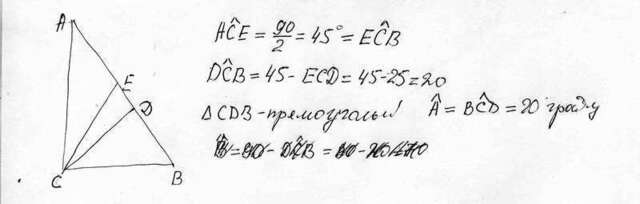 A
E
D
C
B
AĈE = 90/2 = 45° = EĈB
DĈB = 45 - ECD = 45 - 25 = 20
ΔCDB - прямоугольный
Â = BĈD = 20 граду